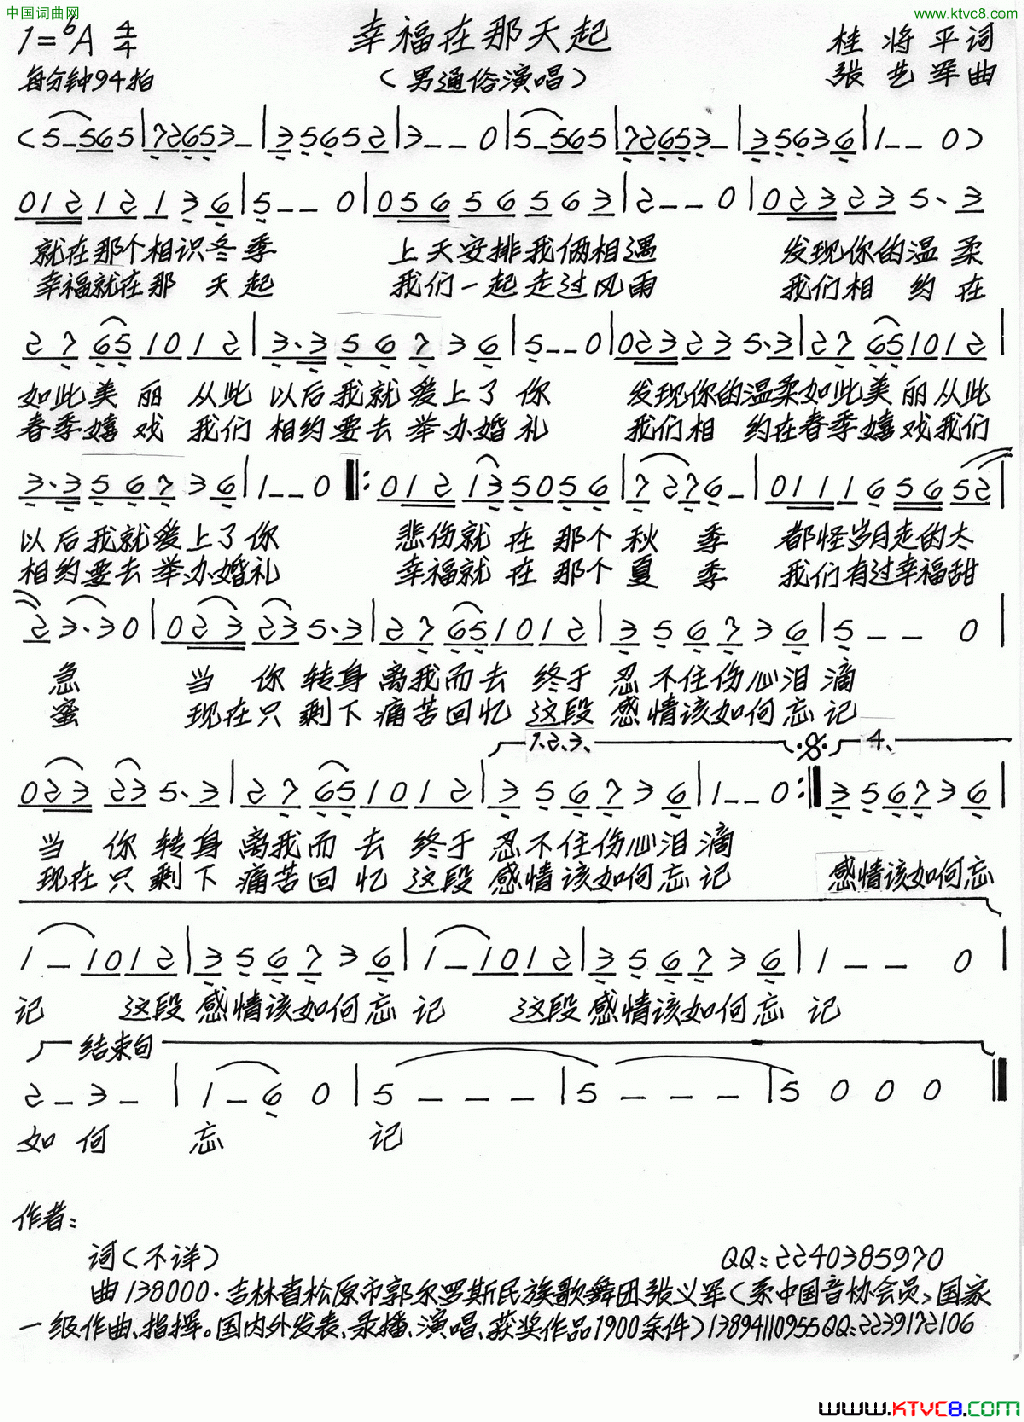 中国词曲网
www.ktvc8.com
1=♭A 4/4
幸福在那天起
桂将平词
每分钟94拍
(男通俗演唱)
张艺军曲
(5-565|72653-|35652|3--0|5-565|72653-|35636|1--0)
01212136|5--0|05656563|2--0|023235·3
就在那个相识冬季 上天安排我俩相遇 发现你的温柔
幸福就在那天起 我们一起走过风雨 我们相约在
27651012|3·356736|5--0|023235·3|27651012|
如此美丽从此以后我就爱上了你 发现你的温柔如此美丽从此
春季嬉戏我们相约要去举办婚礼 我们相约在春季嬉戏我们
3·356736|1--0‖:012135056|7276-|011165652|
以后我就爱上了你 悲伤就在那个秋季 都怪岁月走的太
相约要去举办婚礼 幸福就在那个夏季 我们有过幸福甜
23·30|023235·3|27651012|356736|5--0|
急 当你转身离我而去终于忍不住伤心泪滴
蜜 现在只剩下痛苦回忆这段感情该如何忘记
1.2.3. 4.
023235·3|27651012|356736|1--0:‖356736|
当你转身离我而去终于忍不住伤心泪滴
现在只剩下痛苦回忆这段感情该如何忘记 感情该如何忘
1-1012|356736|1-1012|356736|1--0|
记 这段感情该如何忘记 这段感情该如何忘记
结束句
2-3-|1-60|5---|5---|5000‖
如何忘记
作者:
词(不详) QQ:2240385970
曲138000·吉林省松原市郭尔罗斯民族歌舞团张义军(系中国音协会员,国家
一级作曲、指挥。国内外发表、录播、演唱、获奖作品1900余件)13894110955QQ:2239172106
www.KTVC8.com